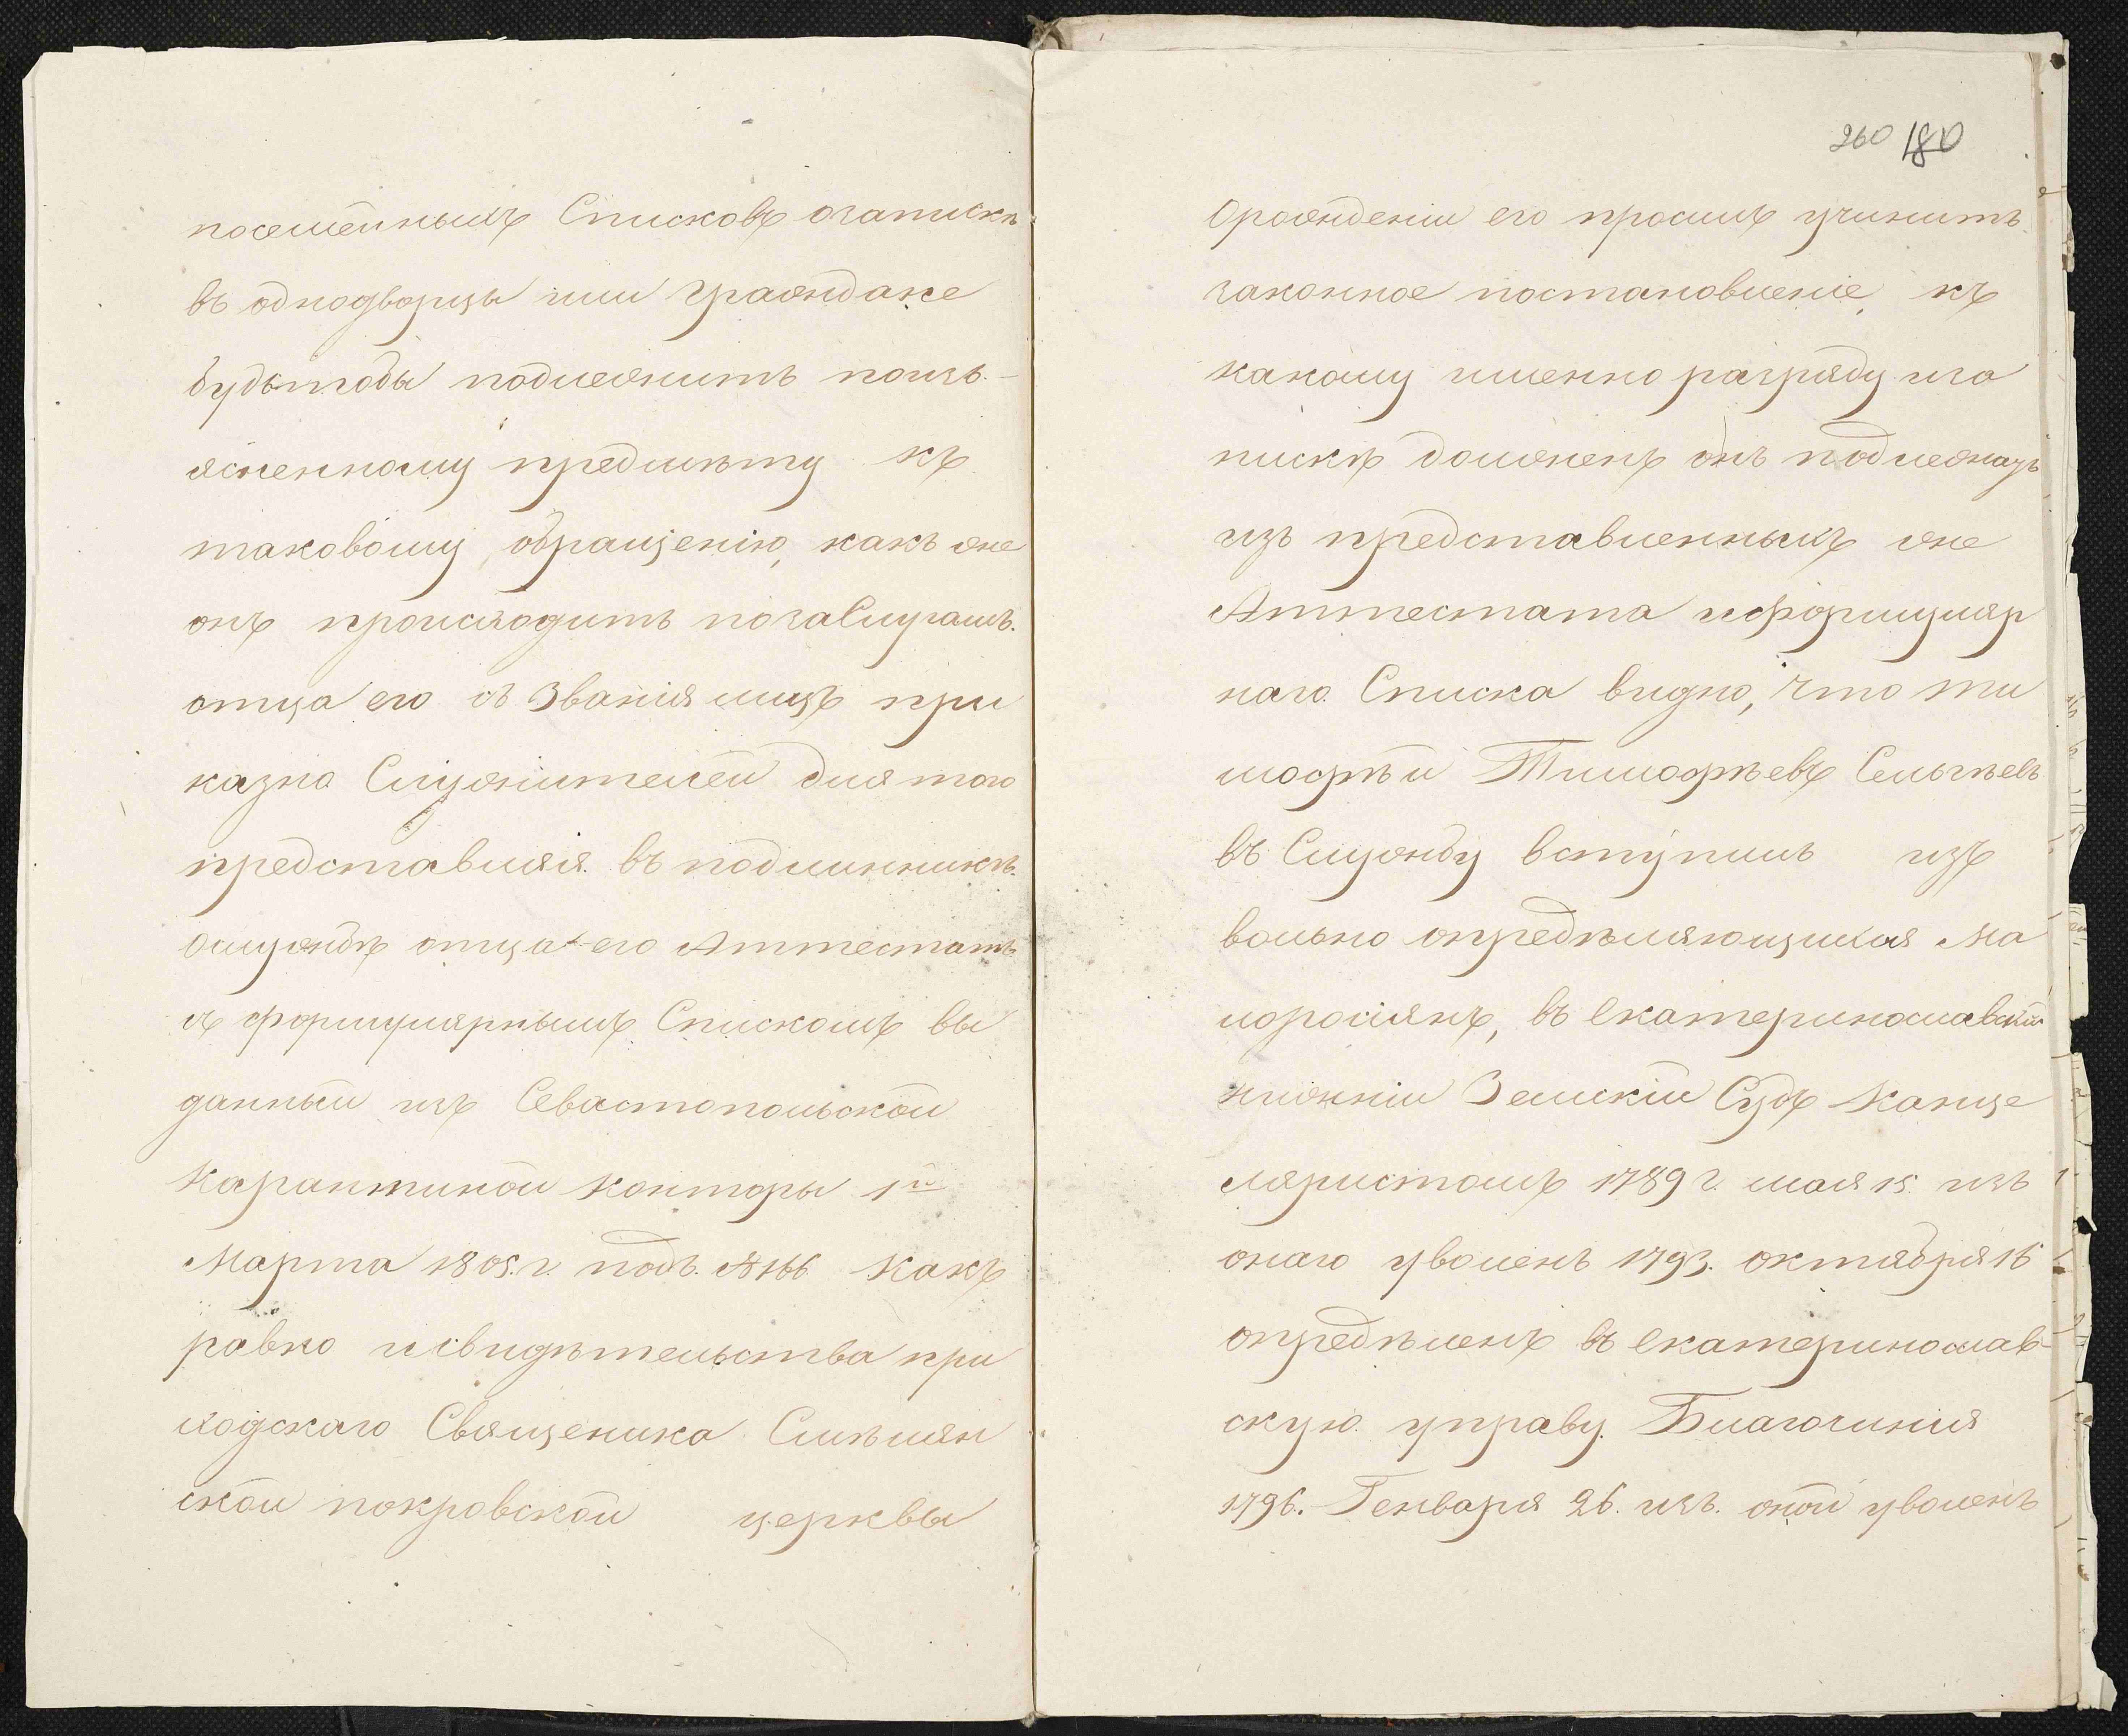 посемейныхъ Списковъ озапискѣ
въ однодворцы или Граждане
будьтобы подлежитъ поизъ-
ясненному предмѣту къ
таковому обращенію, какъ же
онъ происходитъ позаслугамъ
отца его съ Званія лицъ при
казно Служителей для того
представляя въ подлинникѣ
ослужбѣ отца его Аттестатъ
съ формулярнымъ Спискомъ вы
данный изъ Севастопольской
Карантиной Конторы 1го
Марта 1805 г. подъ № 166 Какъ
равно исвидѣтельства при
ходскаго Священика
ской покровской церквы
260 180
Орожденіи его просилъ учинить
законное постановленіе, къ
какому именно разряду иза
пискѣ долженъ онъ подлежать
изъ представленныхъ же
Аттестата иформуляр
наго Списка видно, что Ти
мофѣй Тимофѣевъ
въ Службу вступилъ изъ
вольно опредѣляющихся Ма
лоросіянъ, въ Екатеринославскій
нижній Земскій Судъ Канце
ляристомъ 1789 г. мая 15. изъ
онаго уволенъ 1793. октября 16
опредѣленъ въ Екатеринослав-
скую управу Благочинія
1796. Генваря 26. изъ оной уволенъ